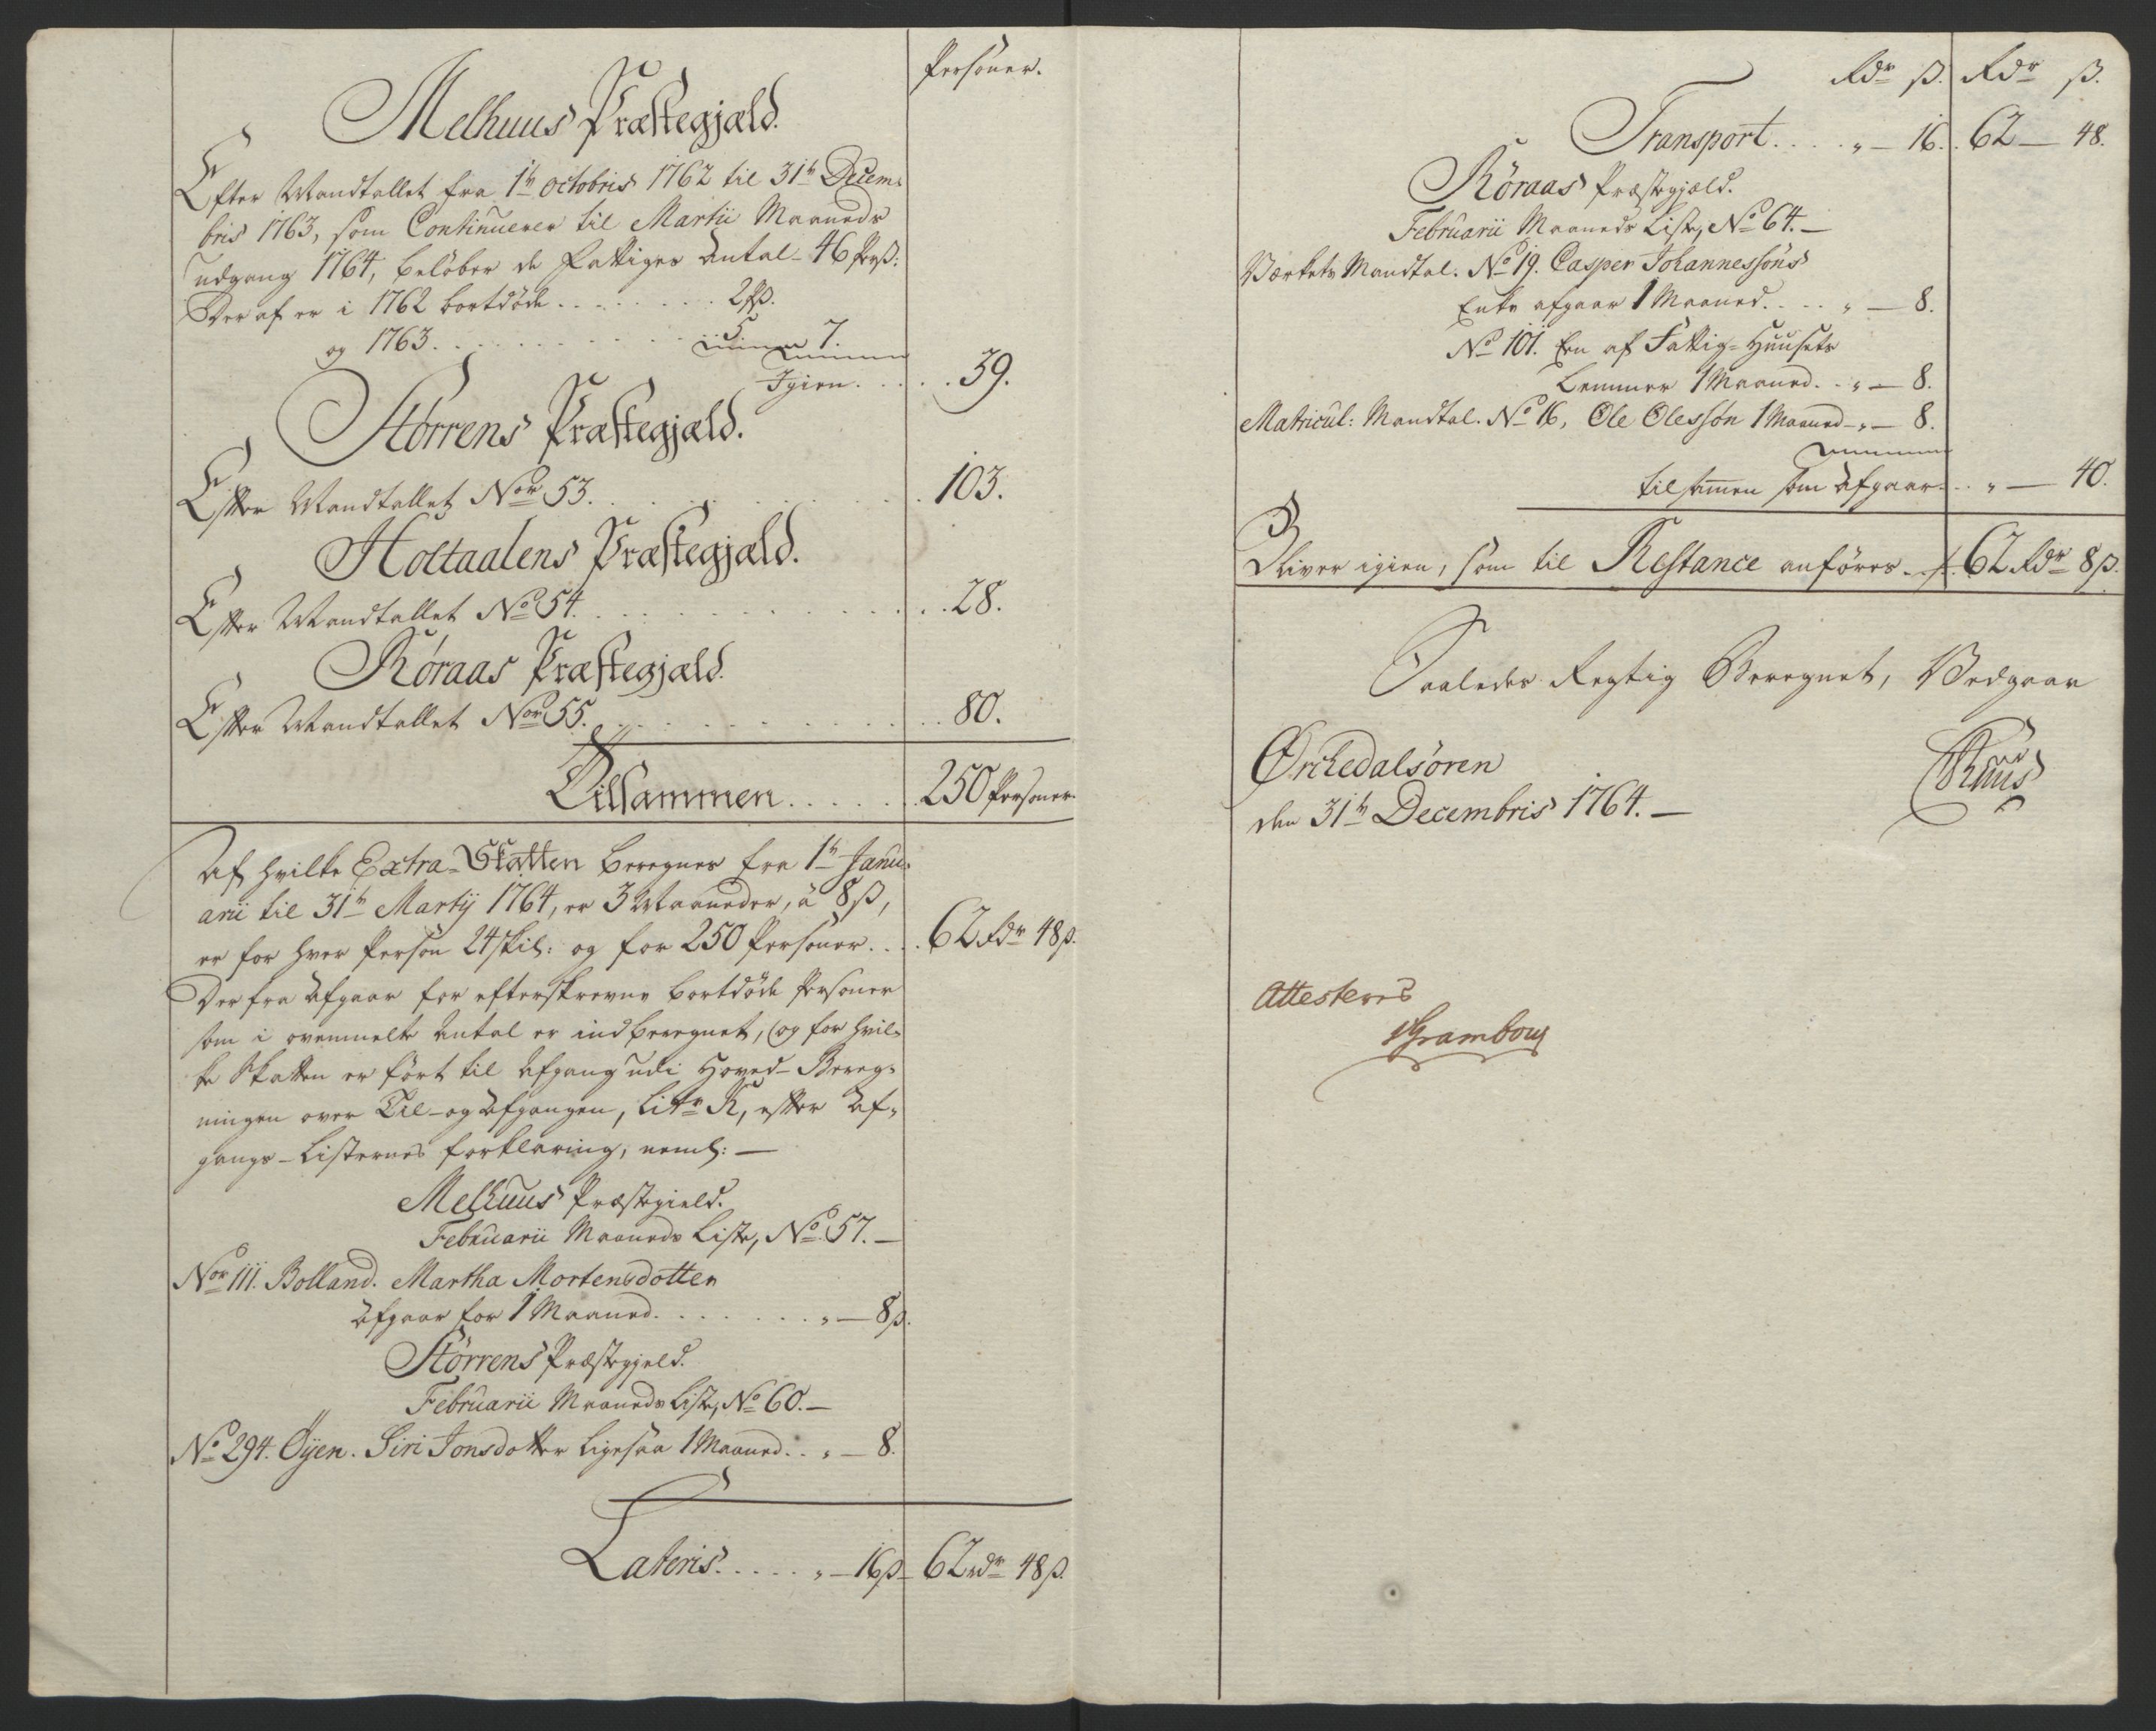 Personer.
Melhuus Præstegjæld.
Efter Mandtallet fra 1te Octobris 1762 til 31te Decem-
bris 1763, som Continuerer til Martii Maaneds
udgang 1764, beløber de Fattiges Antal - 46 Pers:
Der af er i 1762 bortdøde . . . . . . . . 2 ps.
og 1763 . . . . . . . . . 5 7.
Igien . . . . . 39.
Störrens Præstegjæld.
Efter Mandtallet Nor 53. . . . . . . . . . . . 103.
Holtaalens Præstegjæld.
Efter Mandtallet No 54. . . . . . . . . . . . 28.
Röraas Præstegjæld.
Efter Mandtallet Nor 55. . . . . . . . . . . . 80.
Tilsammen . . . . . . . 250 Personer.
Af hvilke Extra-Skatten beregnes fra 1te Janu-
arii til 31te Martij 1764, er 3 Maaneder, à 8 ß,
er for hver Person 24 skil: og for 250 Personer . . . 62 Rdr 48 ß.
Der fra Afgaar for efterskrevne bortdöde Personer
som i ovenmelte Antal er indberegnet, og for hvil-
ke Skatten er fört til Afgang udi Hoved-Bereg-
ningen over Til- og Afgangen, Litr K, efter Af-
gangs-Listernes forklaring, neml: —
Melhuus Præstegield.
Februarii Maaneds Liste, No 57. —
Nor 111. Bolland. Martha Mortensdotter
Afgaar for 1 Maaned . . . . . . . . „ — 8 ß.
Störrens Præstegjeld.
Februarii Maaneds Liste, No 60. —
No 294. Öyen. Siri Jonsdotter ligesaa 1 Maaned . . „ — 8.
Lateris . . . . . „ — 16 ß — 62 rdr 48 ß.
Rdr ß. Rdr ß.
Transport . . . . „ — 16. 62 — 48.
Röraas Præstegjæld.
Februarii Maaneds Liste, No 64. —
Værkets Mandtal. No 19. Casper Johannessöns
Enke afgaar 1 Maaned . . . . „ — 8.
No 101. En af Fattig-Huusets
Lemmer 1 Maaned . . „ — 8.
Matricul: Mandtal. No 16, Ole Olessön 1 Maaned — „ — 8.
tilsammen som Afgaar . . . „ — 40.
Bliver igien, som til Restance anföres . . 62 Rdr 8 ß.
Saaledes Rigtig Beregnet, Vedgaar
Örchedalsören
den 31te Decembris 1764. —
Attesteres